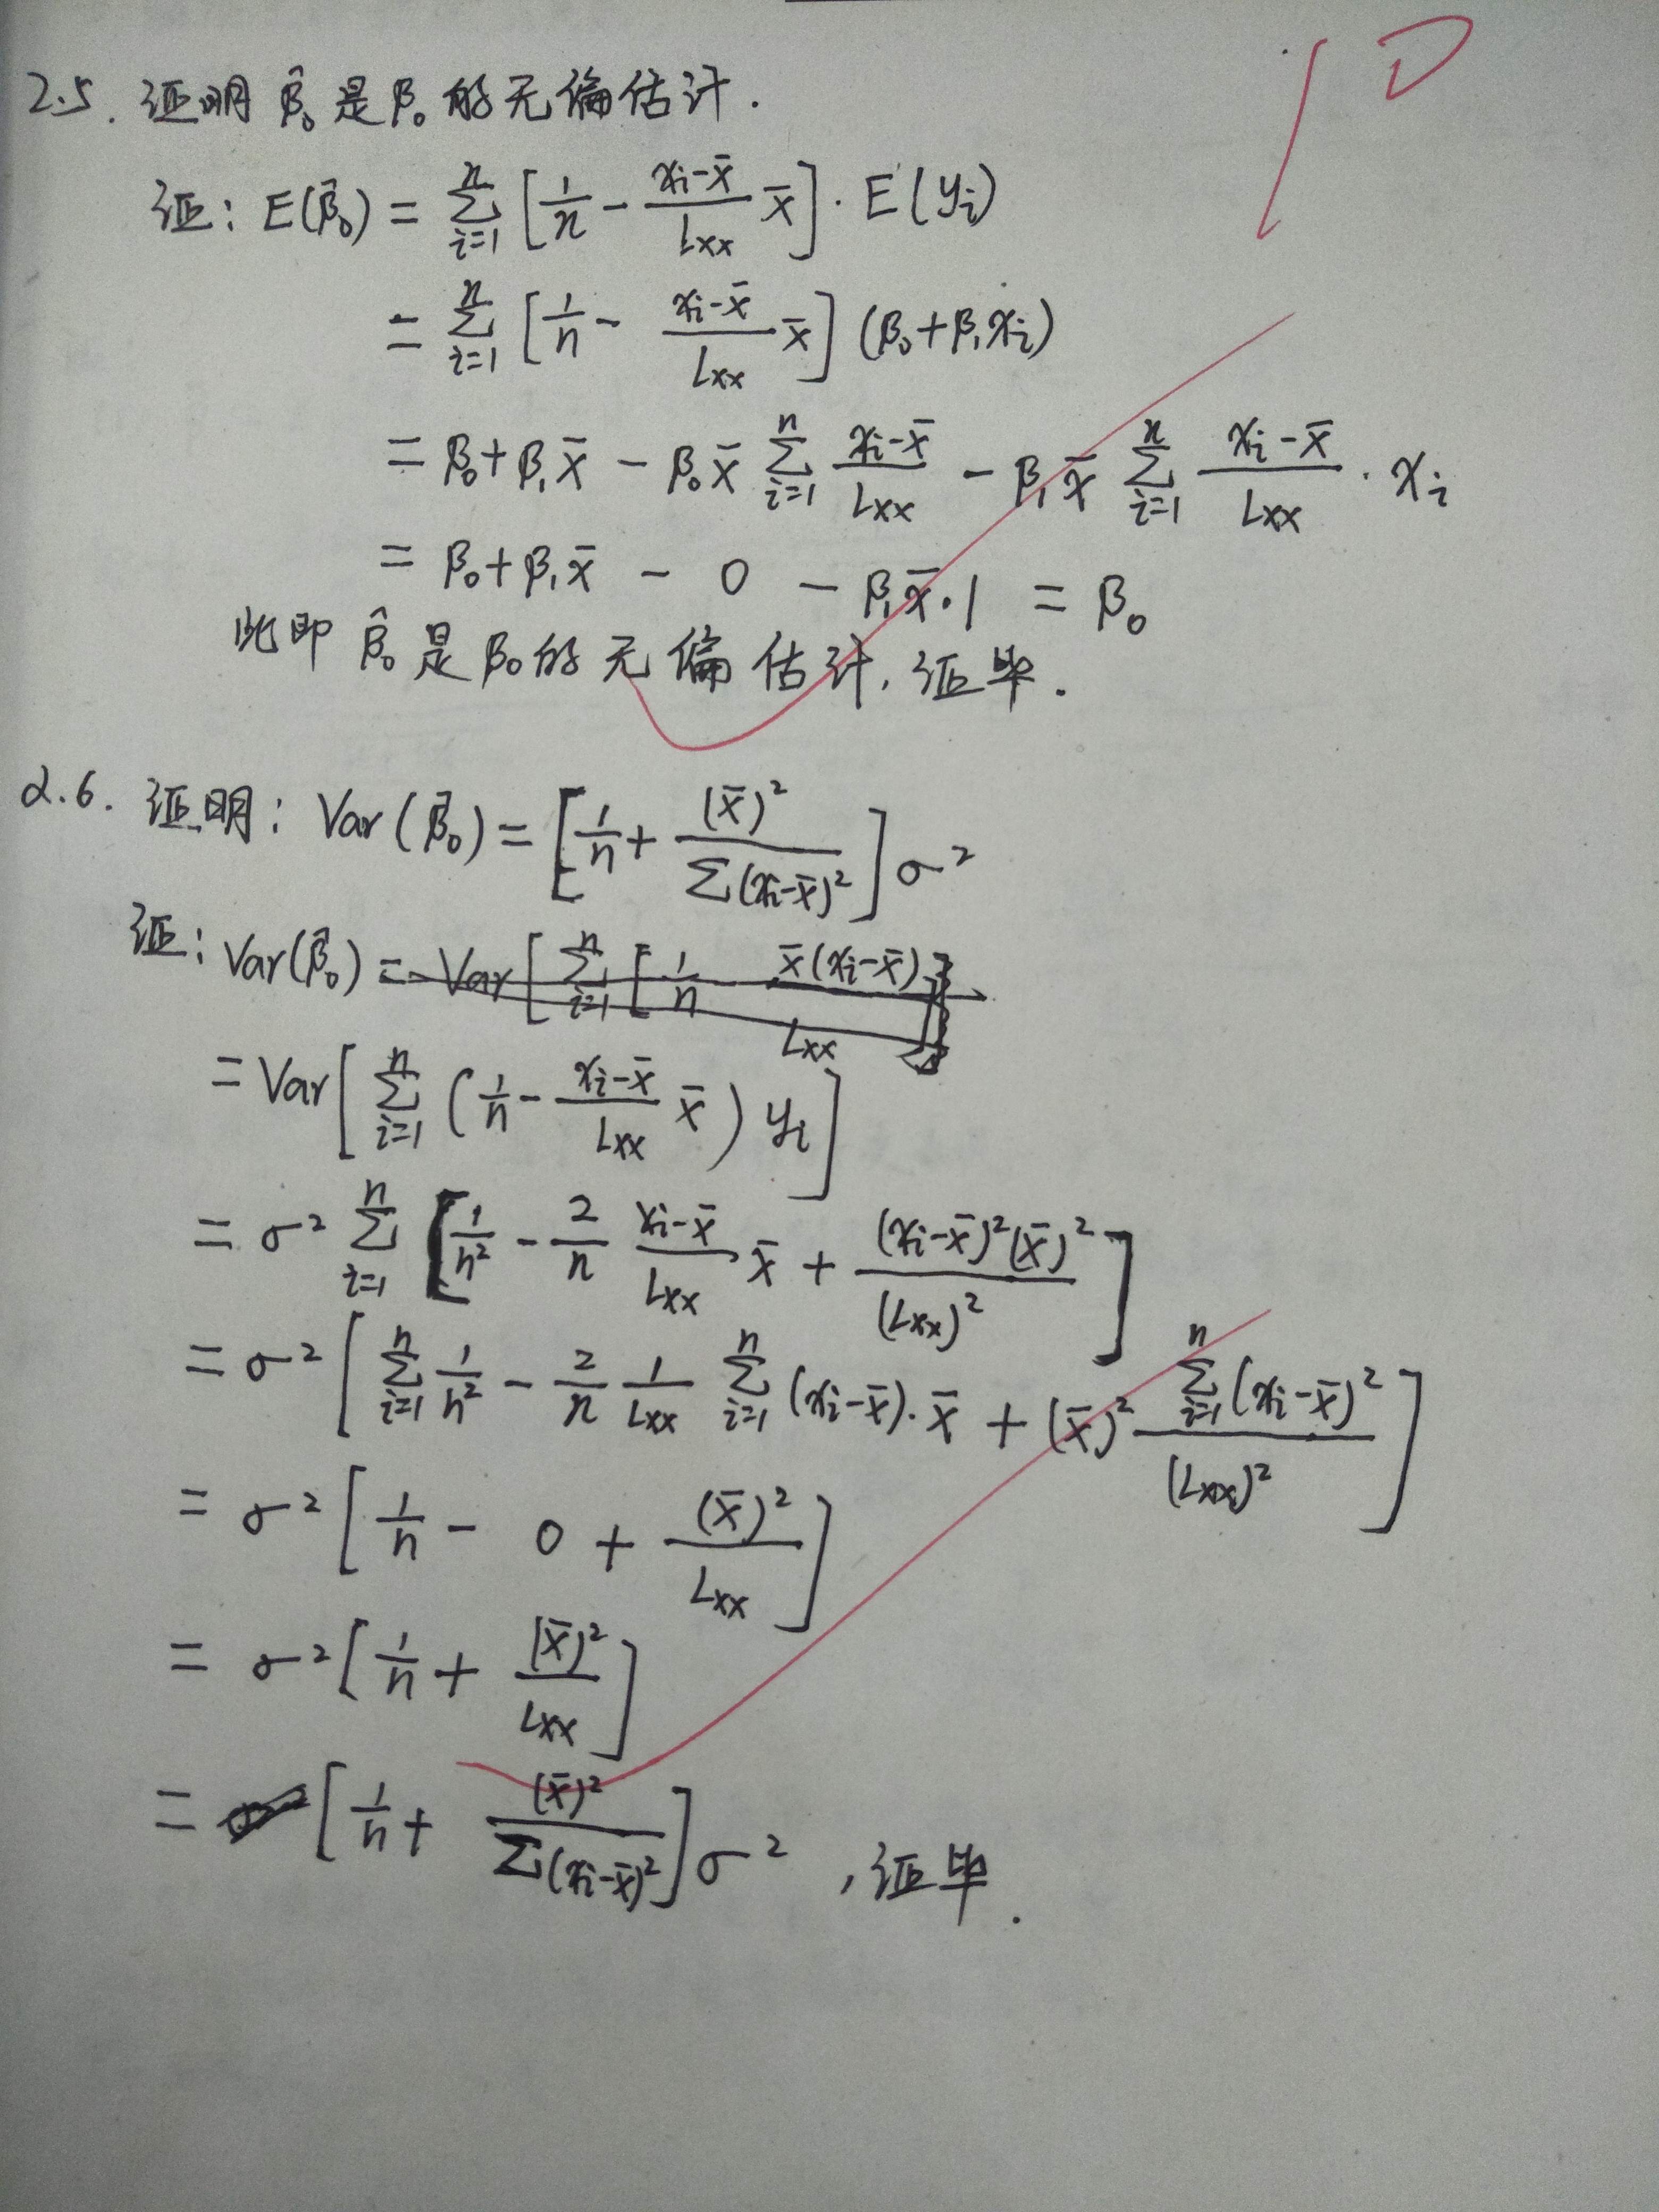 10
2.5. 证明 β̂₀ 是 β₀ 的无偏估计.
证: E(β̂₀) = ∑ⁿᵢ₌₁ [1/n - (xᵢ-x̄)/Lxx x̄] · E(yᵢ)
= ∑ⁿᵢ₌₁ [1/n - (xᵢ-x̄)/Lxx x̄] (β₀+β₁xᵢ)
= β₀+β₁x̄ - β₀x̄ ∑ⁿᵢ₌₁ (xᵢ-x̄)/Lxx - β₁x̄ ∑ⁿᵢ₌₁ (xᵢ-x̄)/Lxx · xᵢ
= β₀+β₁x̄ - 0 - β₁x̄·1 = β₀
此即 β̂₀ 是 β₀ 的无偏估计, 证毕.
2.6. 证明: Var(β̂₀) = [1/n + (x̄)²/∑(xᵢ-x̄)²] σ²
证: Var(β̂₀) = Var[∑ⁿᵢ₌₁ [1/n - x̄(xᵢ-x̄)/Lxx]]
= Var[∑ⁿᵢ₌₁ (1/n - (xᵢ-x̄)/Lxx x̄) yᵢ]
= σ² ∑ⁿᵢ₌₁ [1/n² - 2/n (xᵢ-x̄)/Lxx x̄ + (xᵢ-x̄)²(x̄)²/(Lxx)²]
= σ² [∑ⁿᵢ₌₁ 1/n² - 2/n 1/Lxx ∑ⁿᵢ₌₁ (xᵢ-x̄)·x̄ + (x̄)² ∑ⁿᵢ₌₁(xᵢ-x̄)²/(Lxx)²]
= σ² [1/n - 0 + (x̄)²/Lxx]
= σ² [1/n + (x̄)²/Lxx]
= [1/n + (x̄)²/∑(xᵢ-x̄)²] σ² , 证毕.